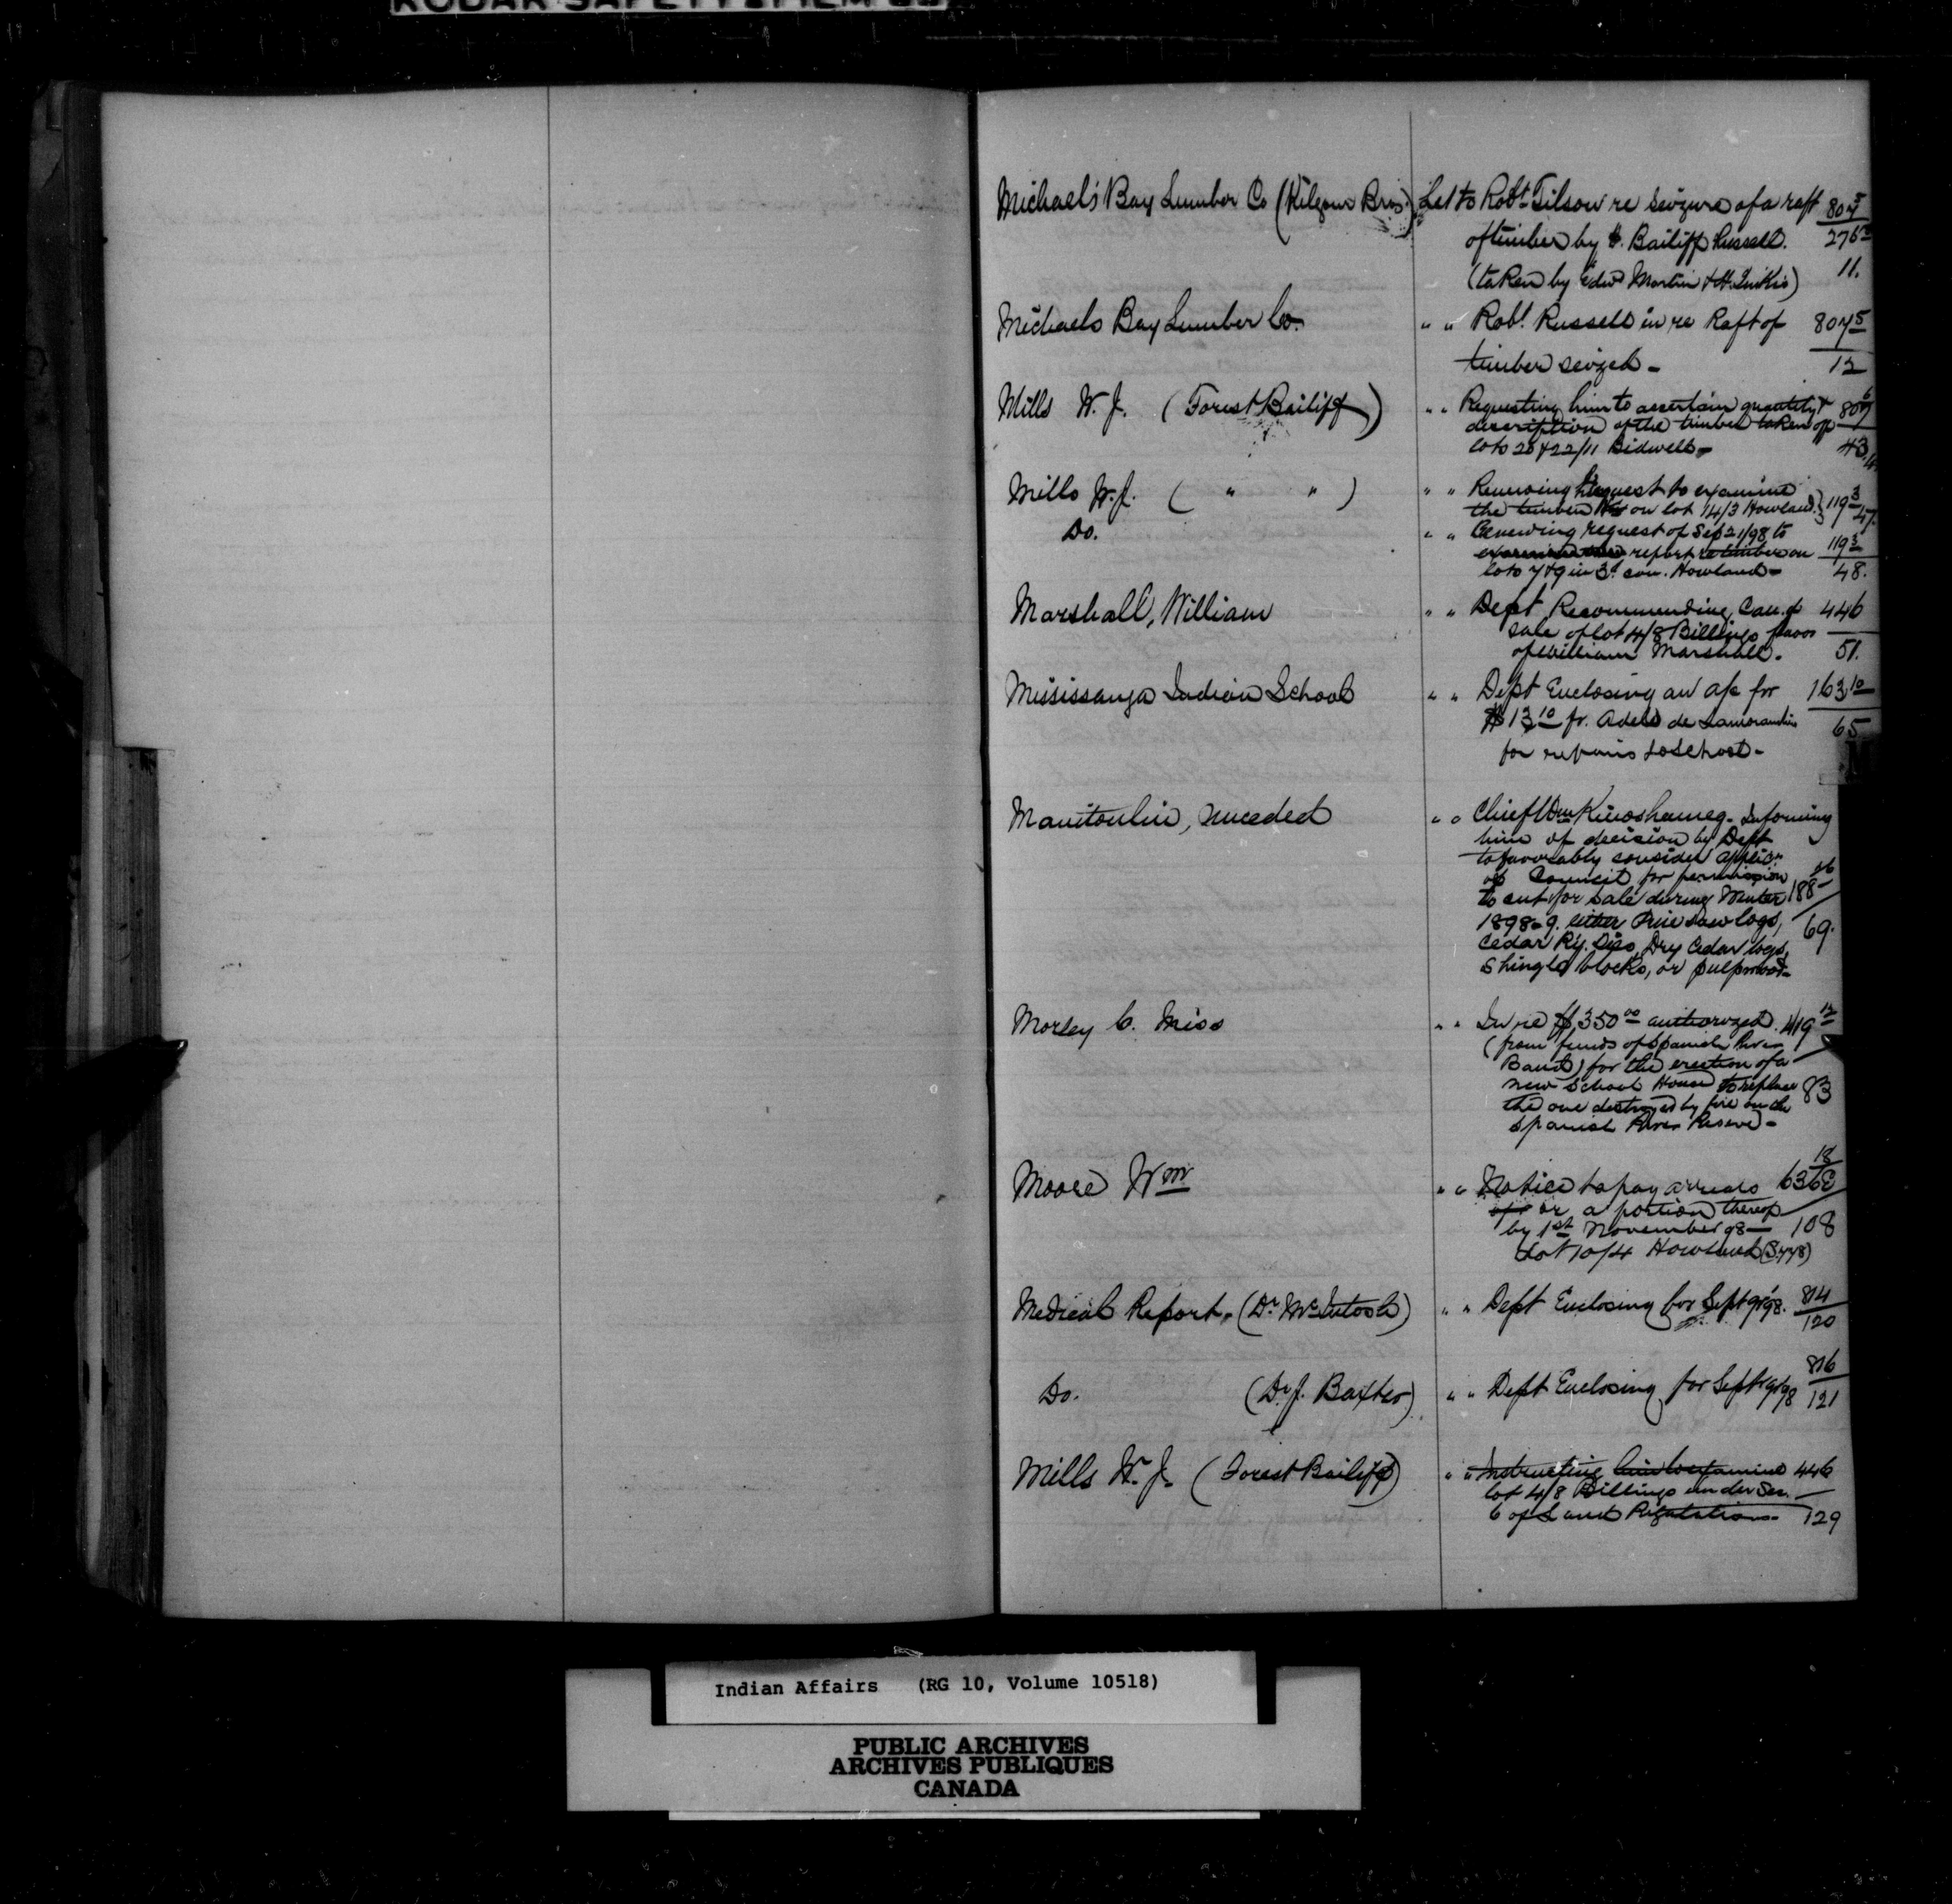 KODAK SAFETY FILM
Michael's Bay Lumber Co (Kilgour Bros.) Let to Robt. Tilson re seizure of a raft 807 5
of timber by F. Bailiff Russell. 276
(taken by Edwd Martin & H. ) 11.
Michaels Bay Lumber Co. " " Robt. Russell in re Raft of 807 5
timber seized - 12
Mills W. J. (Forest Bailiff) " " Requesting him to ascertain quantity & 807 6
description of the timber taken off
lots 20 & 22/11 Bidwell - 43
Mills W. J. ( " " ) " " Renewing request to examine
the timber on lot 14/3 Howland. } 119 3 47.
Do. " " Renewing request of Sep 21/98 to
report re timber on 119 3
lots 7 & 9 in 3d. con. Howland - 48.
Marshall, William " " Dept Recommending Can. of 446
sale of lot 4/8 Billings favor
of William Marshall. 51.
Mississauga Indian School " " Dept Enclosing an a/c for 163 10
$13 10 fr. Adele de Lamorandiere 65
for repairs to School -
Manitoulin, unceded " " Chief Wm Kinoshameg - Informing
him of decision by Dept
to favorably consider applicn.
of Council for permission
to cut for sale during Winter 188
1898-9. either Pine saw logs, 69.
Cedar Ry. Ties, Dry Cedar logs,
Shingle blocks, or pulpwood -
Morley C. Miss " " In re $350 00 authorized 419 12
(from funds of Spanish River
Band) for the erection of a
new School House to replace 83
the one destroyed by fire on the
Spanish River Reserve -
Moore Wm " " Notice to pay arrears 6368 18
or a portion thereof
by 1st November 98 - 108
Lot 10/4 Howland (S.778)
Medical Report, (Dr. McIntosh) " " Dept Enclosing for Sept 98. 814
120
Do. (Dr. J. Baxter) " " Dept Enclosing for Sept 98 816
121
Mills W. J. (Forest Bailiff) " " Instructing him to examine 446
lot 4/8 Billings under Sec.
6 of Land Regulations - 129
Indian Affairs (RG 10, Volume 10518)
PUBLIC ARCHIVES
ARCHIVES PUBLIQUES
CANADA